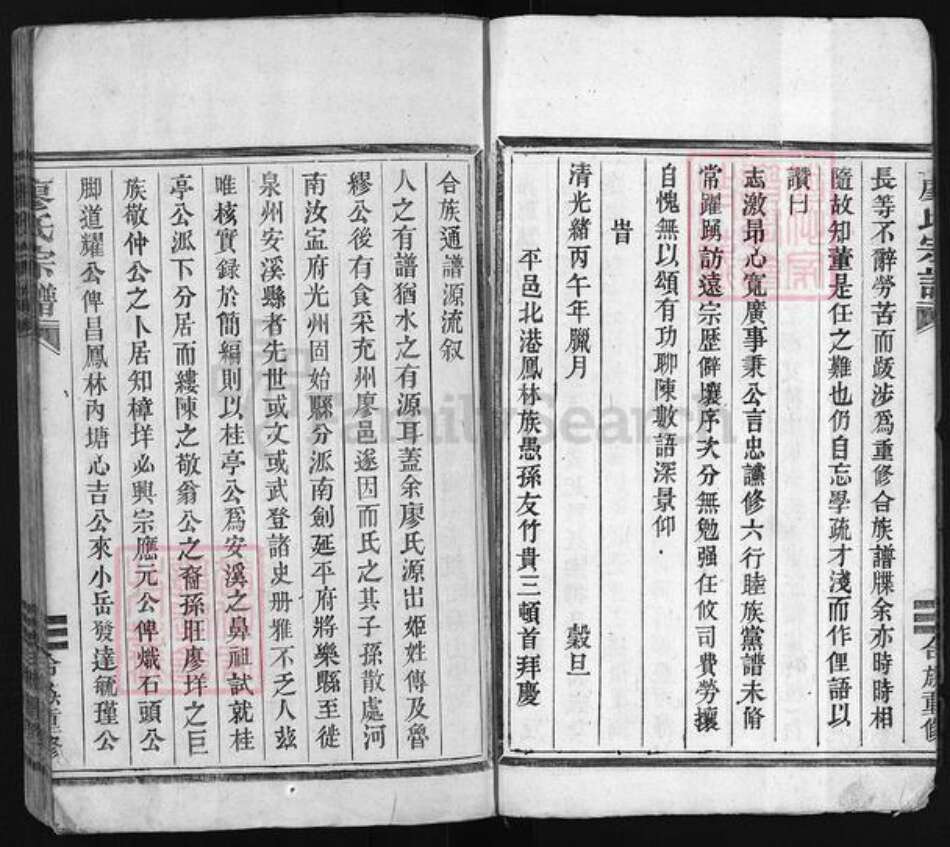 長等不辭勞苦而跋涉爲重修合族譜牒余亦時時相
隨故知董是任之難也仍自忘學疏才淺而作俚語以
讚曰
志激昂心寬廣事秉公言忠讜修六行睦族黨譜未脩
常躍踴訪遠宗歷僻壤序次分無勉强任攸司費勞攘
自愧無以頌有功聊陳數語深景仰
旹
清光緒丙午年臘月 穀旦
平邑北港鳳林族愚孫友竹貴三頓首拜慶
合族重修
廖氏宗譜
合族通譜源流叙
人之有譜猶水之有源耳蓋余廖氏源出姬姓傳及魯
繆公後有食采充州廖邑遂因而氏之其子孫散處河
南汝寍府光州固始縣分派南劍延平府將樂縣至徙
泉州安溪縣者先世或文或武登諸史册雅不乏人兹
唯核實録於簡編則以桂亭公爲安溪之鼻祖試就桂
亭公派下分居而縷陳之敬翁公之裔孫旺廖垟之巨
族敬仲公之卜居知樟垟必興宗應元公俾熾石頭公
脚道耀公俾昌鳳林內塘心吉公來小岳發達毓瑾公
廖氏宗譜
合族重修
FamilySearch